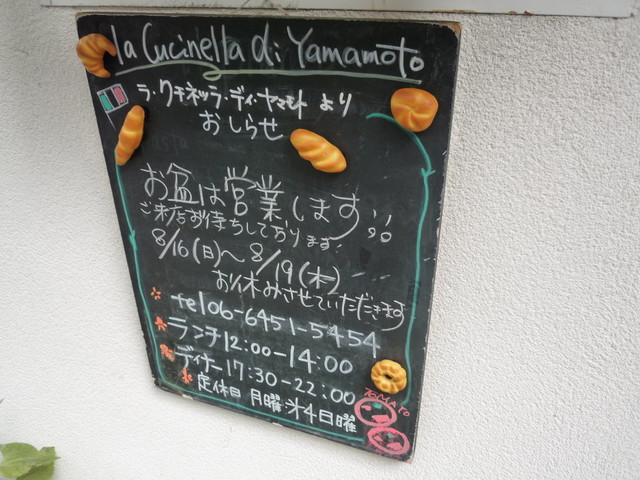 la Cucinella di Yamamoto
ラ・クチネッラ・ディ・ヤマモト より
おしらせ
お盆は営業します
ご来店お待ちしております
8/16(日)〜8/19(木)
お休みさせていただきます
tel 06-6451-5454
ランチ12:00-14:00
ディナー17:30-22:00
定休日 月曜 第4日曜